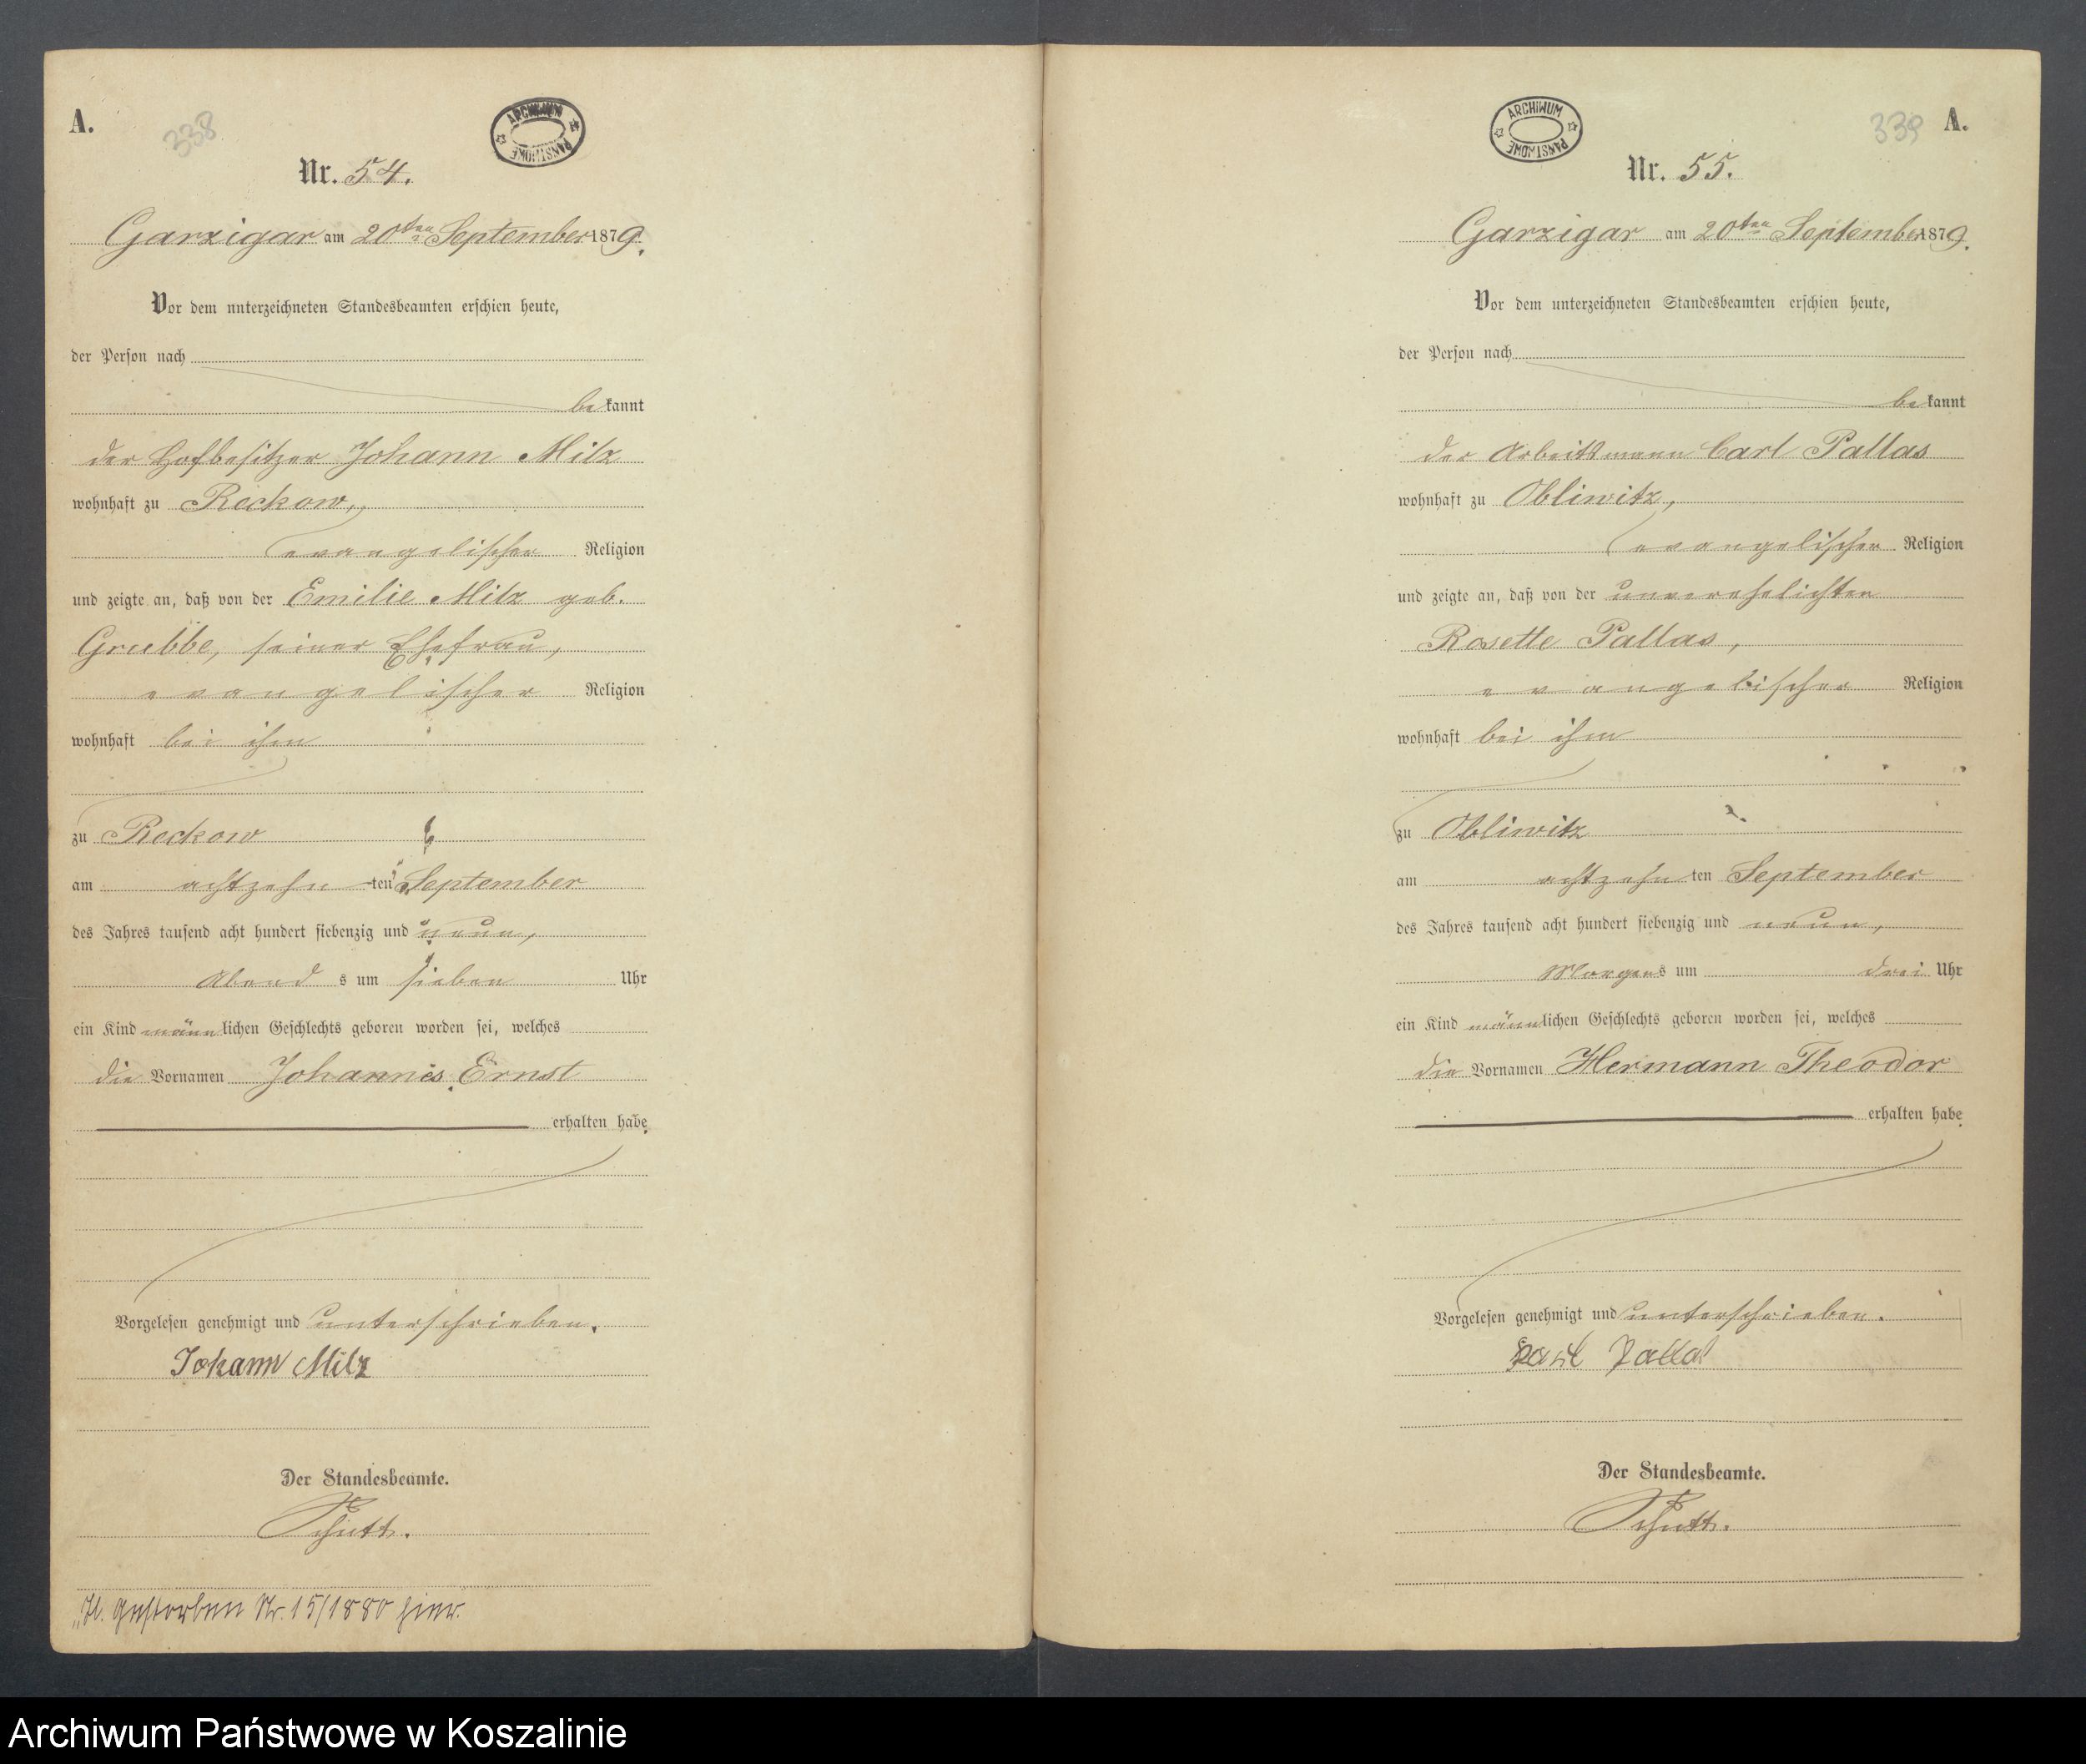 A.
338
ARCHIWUM PAŃSTWOWE
Nr. 54.
Garzigar am 20ten September 1879.
Vor dem unterzeichneten Standesbeamten erschien heute,
der Person nach
bekannt
der Hofbesitzer Johann Milz
wohnhaft zu Reckow,
evangelischer Religion
und zeigte an, daß von der Emilie Milz geb.
Grubbe, seiner Ehefrau,
evangelischer Religion
wohnhaft bei ihm
zu Reckow
am achtzehnten September
des Jahres tausend acht hundert siebenzig und neun,
Abends um sieben Uhr
ein Kind männlichen Geschlechts geboren worden sei, welches
die Vornamen Johannes Ernst
erhalten habe.
Vorgelesen genehmigt und unterschrieben.
Johann Milz
Der Standesbeamte.
gestorben Nr. 15/1880 hier.
ARCHIWUM PAŃSTWOWE
339
A.
Nr. 55.
Garzigar am 20ten September 1879.
Vor dem unterzeichneten Standesbeamten erschien heute,
der Person nach
bekannt
der Arbeitsmann Carl Pallas
wohnhaft zu Obliwitz,
evangelischer Religion
und zeigte an, daß von der unverehelichten
Rosette Pallas,
evangelischer Religion
wohnhaft bei ihm
zu Obliwitz
am achtzehnten September
des Jahres tausend acht hundert siebenzig und neun,
Morgens um drei Uhr
ein Kind männlichen Geschlechts geboren worden sei, welches
die Vornamen Hermann Theodor
erhalten habe.
Vorgelesen genehmigt und unterschrieben.
Karl Pallas
Der Standesbeamte.
Archiwum Państwowe w Koszalinie